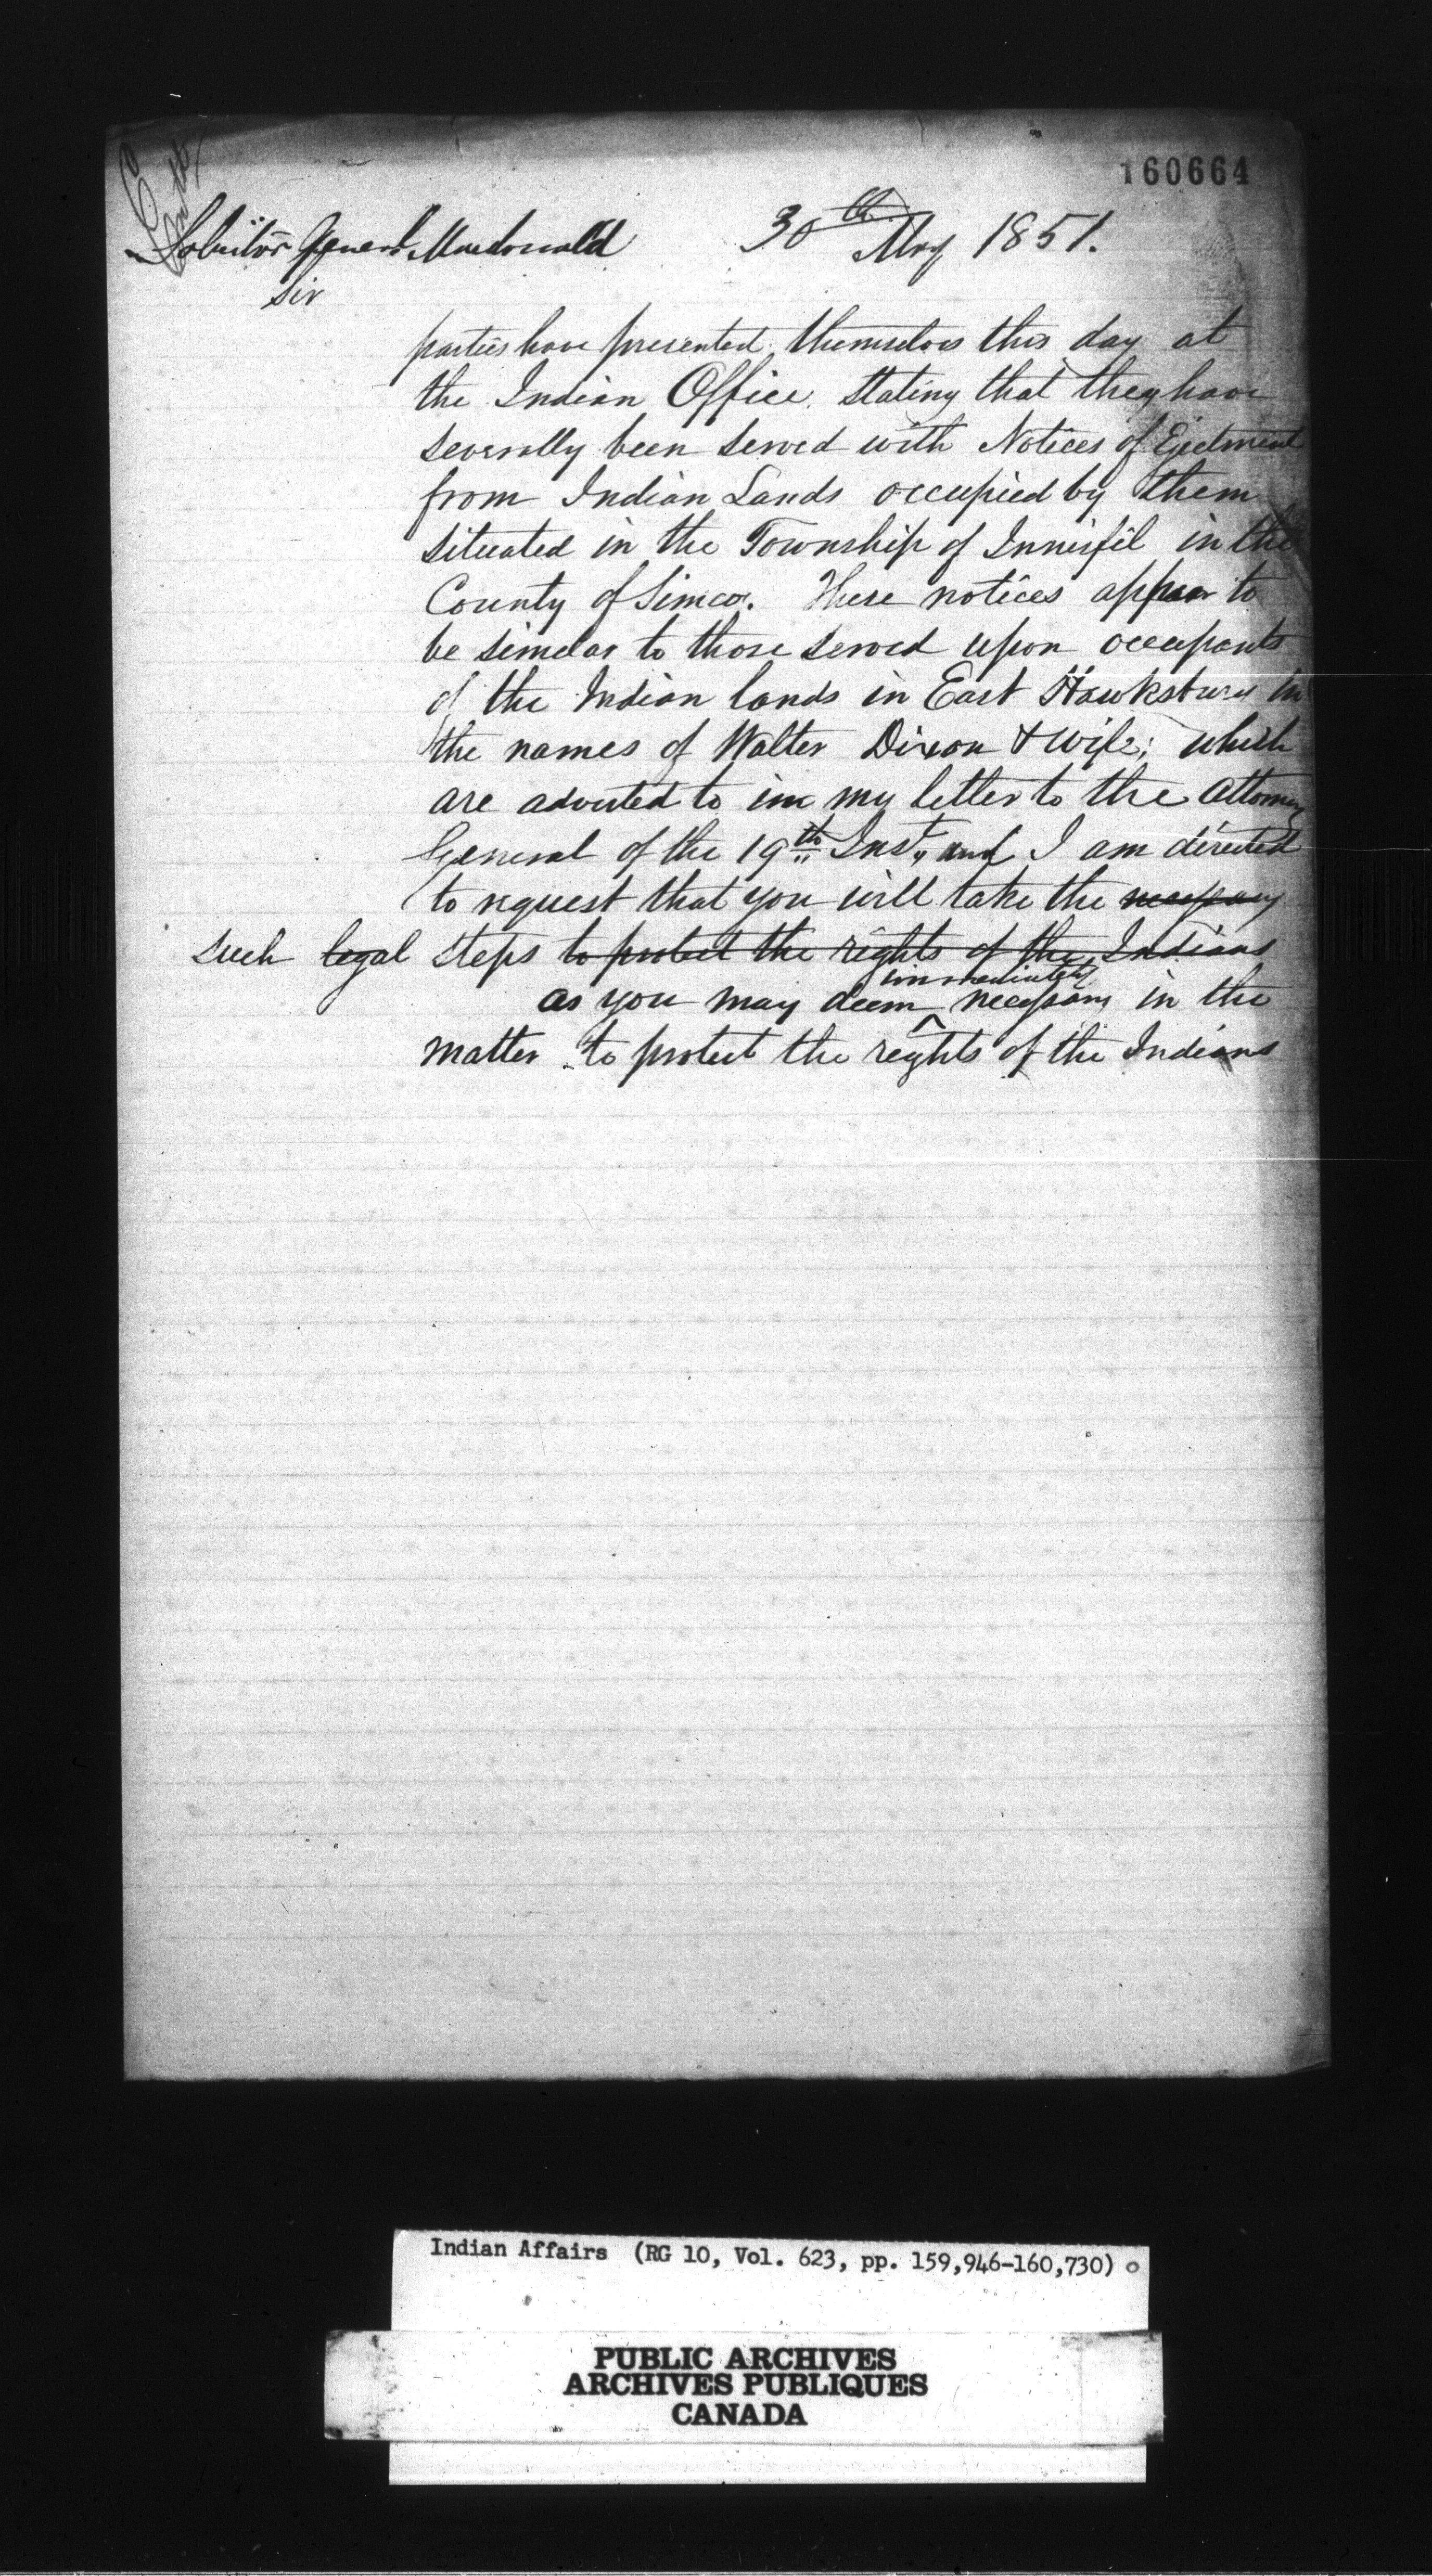 160664
Solicitor General Macdonald 30th May 1851.
Sir
parties have presented themselves this day at
the Indian Office, stating that they have
severally been served with Notices of Ejectment
from Indian Lands occupied by them
situated in the Township of Innisfil in the
County of Simcoe. These notices appear to
be similar to those served upon occupants
of the Indian lands in East Hawksbury in
the names of Walter Dixon & wife; which
are adverted to in my letter to the Attorney
General of the 19th Inst, and I am directed
to request that you will take the necessary
such legal steps to protect the rights of the Indians
immediately
as you may deem ^ necessary in the
matter to protect the rights of the Indians
Indian Affairs (RG 10, Vol. 623, pp. 159,946-160,730)
PUBLIC ARCHIVES
ARCHIVES PUBLIQUES
CANADA